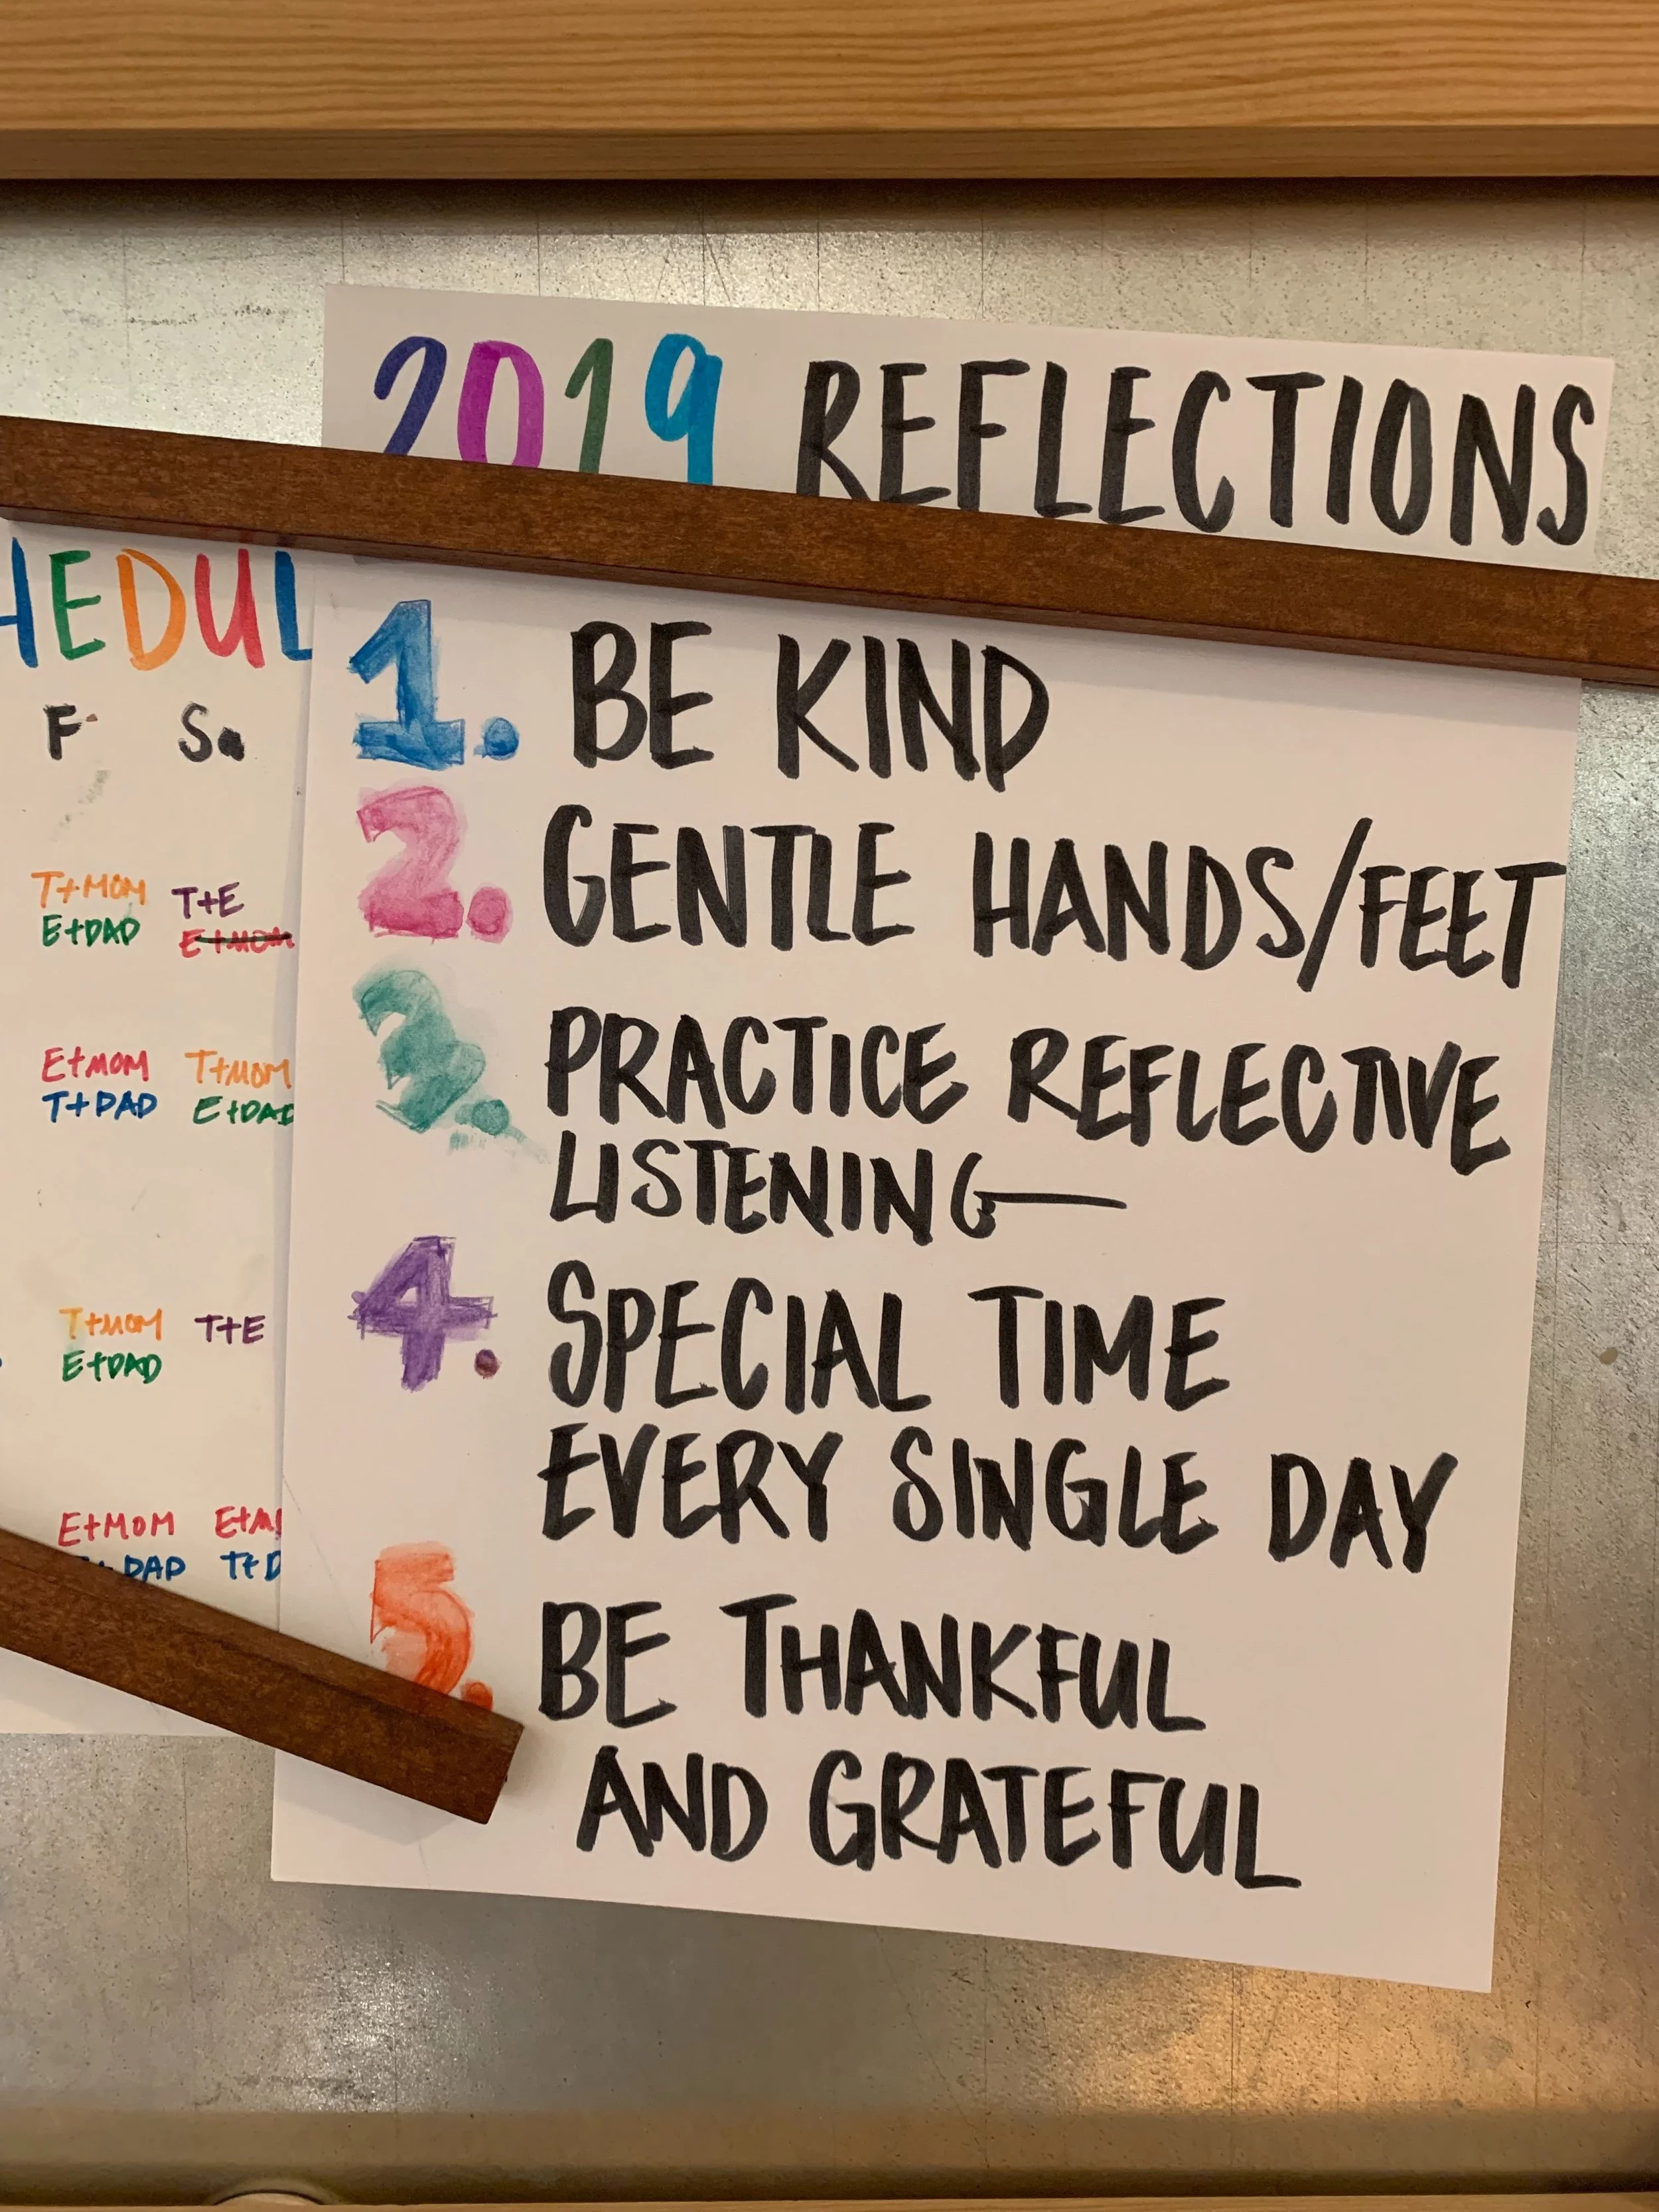 2019 REFLECTIONS
1. BE KIND
2. GENTLE HANDS/FEET
3. PRACTICE REFLECTIVE
LISTENING
4. SPECIAL TIME
EVERY SINGLE DAY
5. BE THANKFUL
AND GRATEFUL
HEDUL
F Sa
T+MOM T+E
E+DAD E+MOM
E+MOM T+MOM
T+DAD E+DAD
T+MOM T+E
E+DAD
E+MOM E+M
DAD T+D